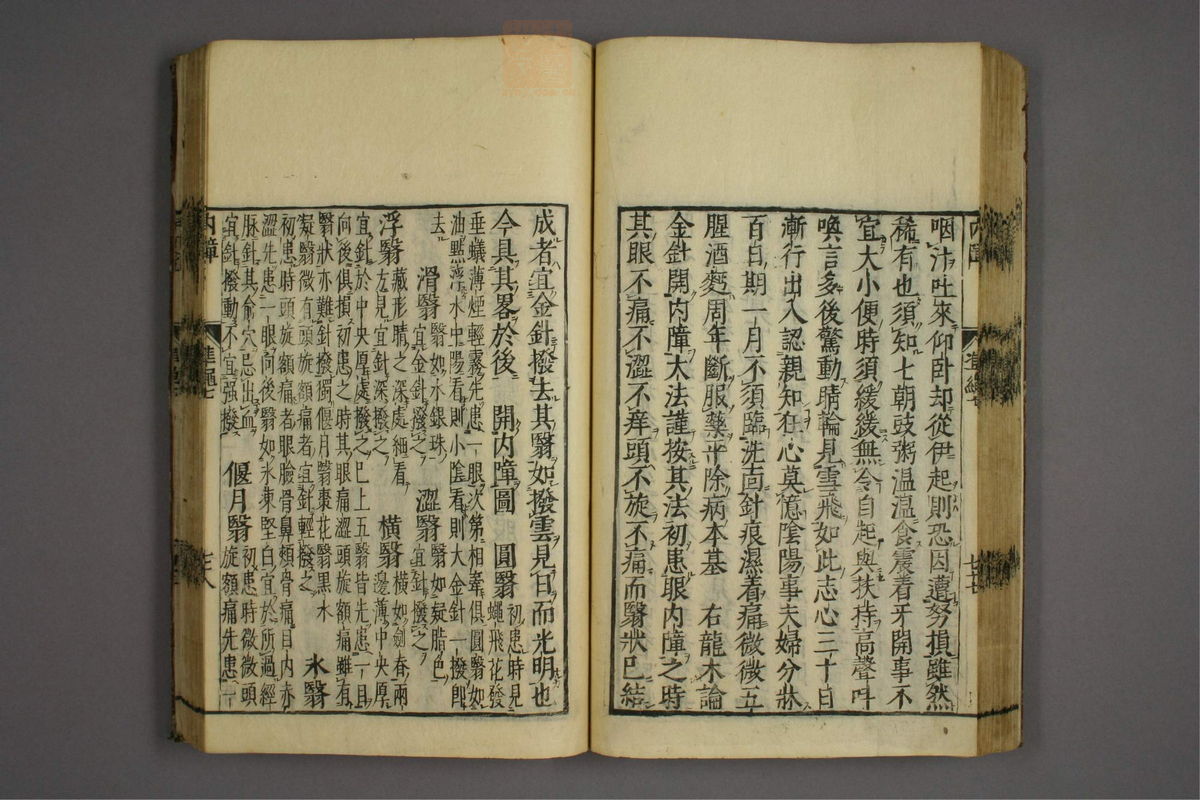 咽汁吐來仰臥却從伊起則恐因遭努損雖然
稀有也須知七朝豉粥溫溫食震着牙開事不
宜大小便時須緩緩無令自起與扶持高聲叫
喚言多後驚動睛輪見雪飛如此志心三十日
漸行出入認親知在心莫憶陰陽事夫婦分牀
百日期一月不須臨洗靣針痕濕着痛微微五
腥酒麪周年斷服藥平除病本基 右龍木論
金針開內障大法謹按其法初患眼內障之時
其眼不痛不澀不痒頭不旋不痛而翳狀已結
成者宜金針撥去其翳如撥雲見日而光明也
今具其畧於後 開內障圖 圓翳 初患時見
蠅飛花發
垂蟻薄煙輕霧先患一眼次第相牽俱圓翳如
油點浮水中陽看則小陰看則大金針一撥卽
去
滑翳 翳如水銀珠
宜金針撥之
澀翳 翳如凝脂色
宜針撥之
浮翳 藏形睛之深處細看
方見宜針深撥之
橫翳 橫如劍脊兩
邊薄中央厚
宜針於中央厚處撥之已上五翳皆先患一目
向後俱損初患之時其眼痛澀頭旋額痛雖有
翳狀亦難針撥獨偃月翳棗花翳黑水
凝翳微有頭旋額痛者宜針輕撥之
氷翳
初患時頭旋額痛者眼瞼骨鼻頰骨痛目內赤
澀先患一眼向後翳如氷凍堅白宜於所過經
脉針其俞穴忌出血
宜針撥動不宜强撥
偃月翳 初患時微微頭
旋額痛先患一
內障
準繩七
七十八